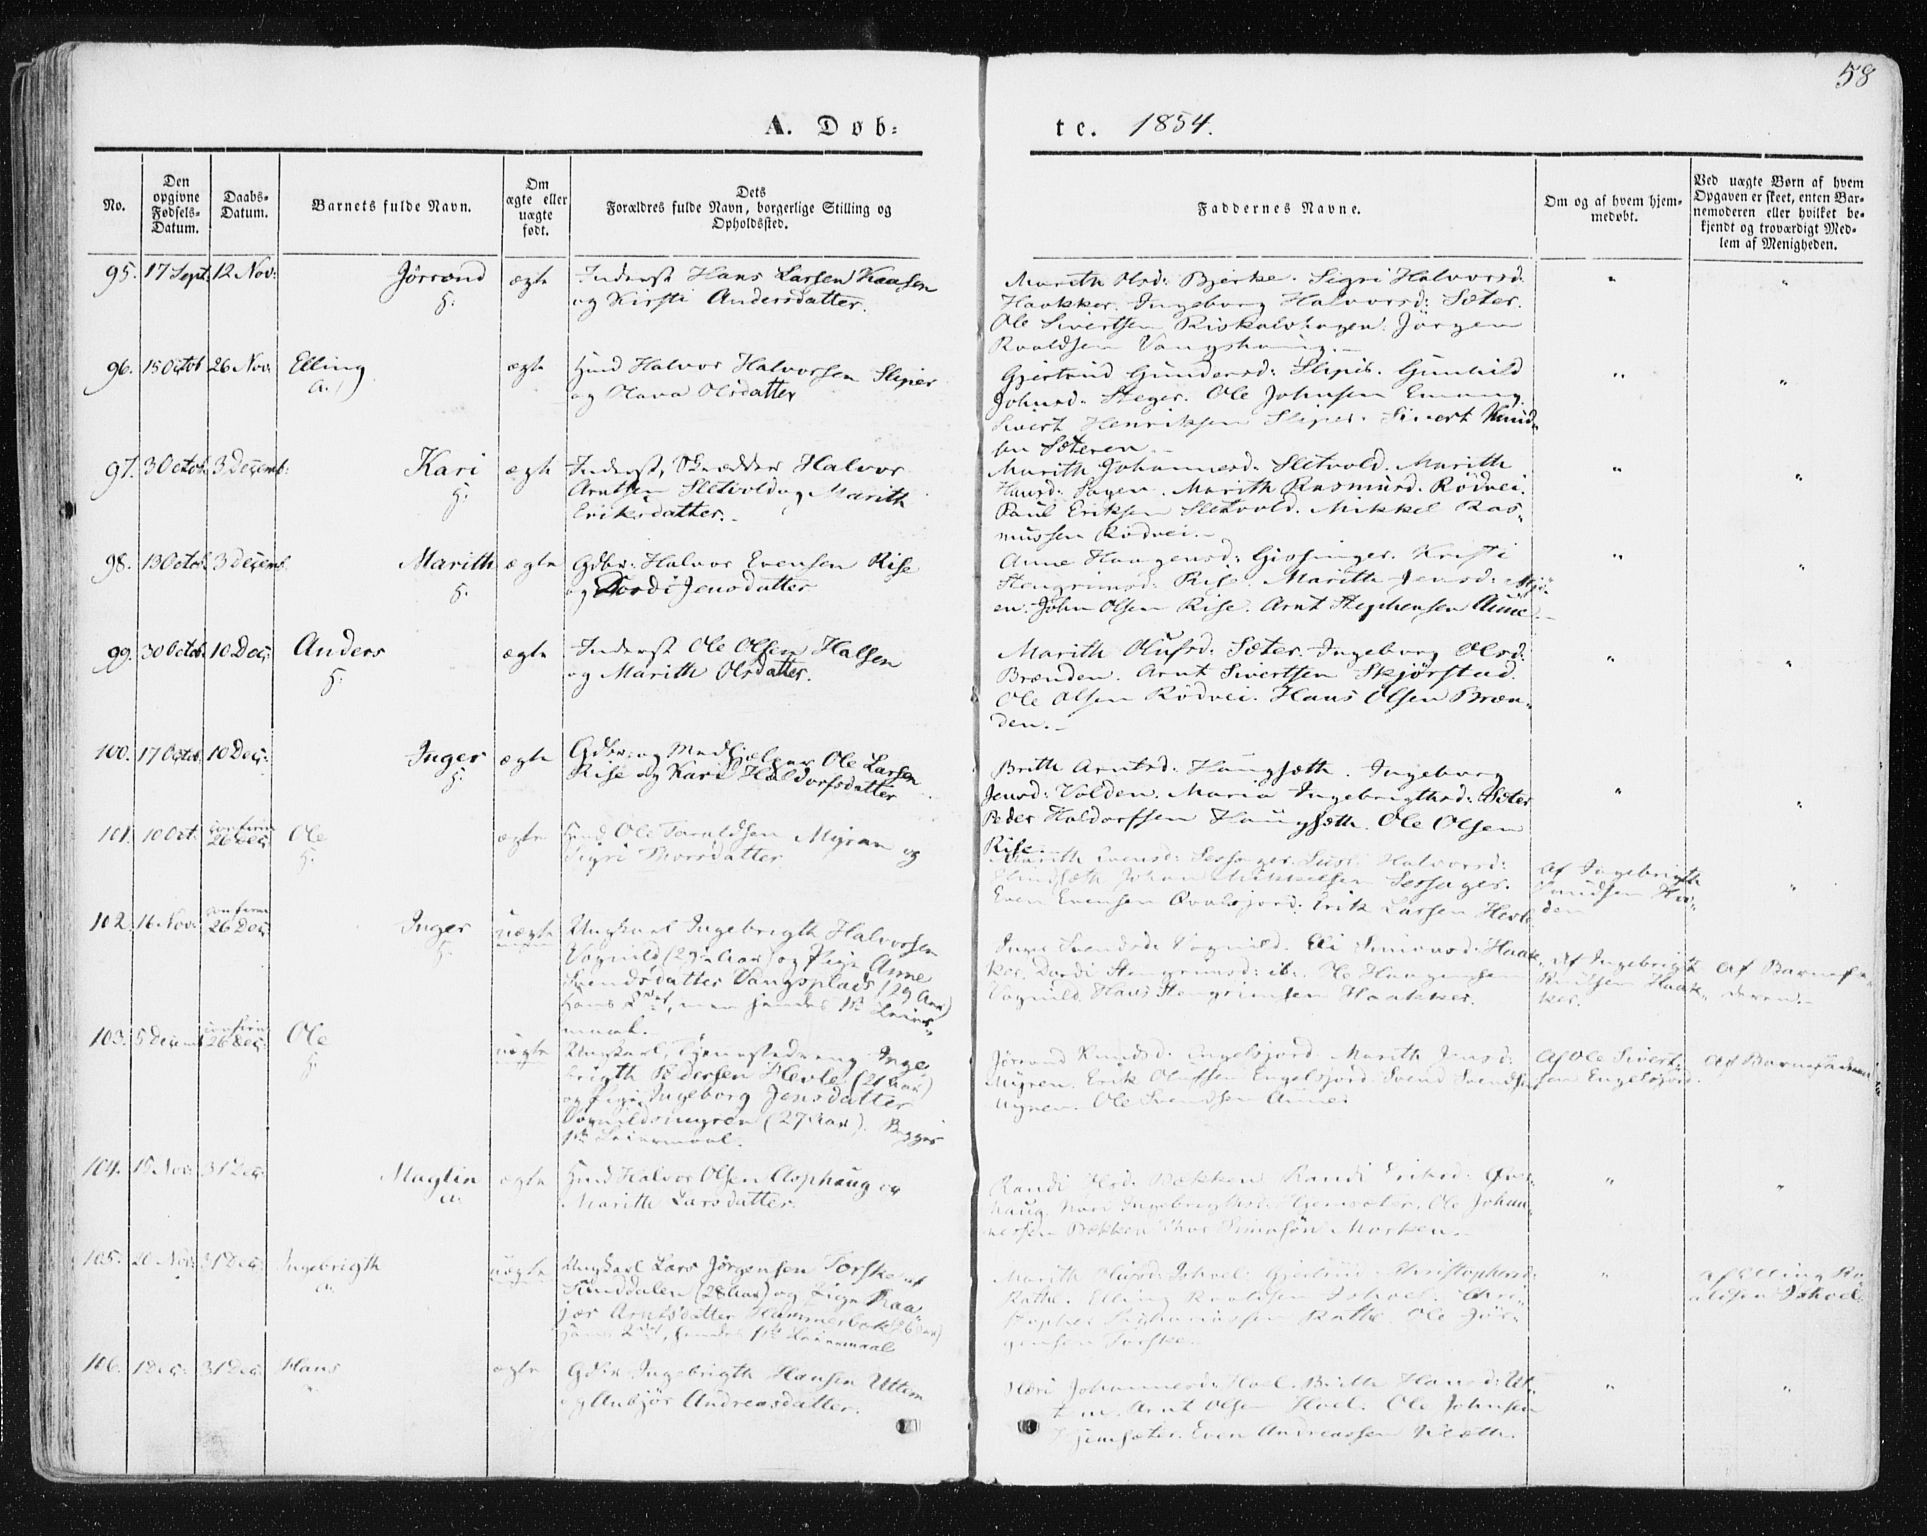 58
A. Døb=
te. 1854.
No.
Den opgivne Fødsels-Datum.
Daabs-Datum.
Barnets fulde Navn.
Om ægte eller uægte født.
Dets Forældres fulde Navn, borgerlige Stilling og Opholdssted.
Faddernes Navne.
Om og af hvem hjemmedøbt.
Ved uægte Børn af hvem Opgaven er skeet, enten Barnemoderen eller hvilket bekjendt og troværdigt Medlem af Menigheden.
95. 17 Sept: 12 Nov: Jörrond ægte Inderst Hans Larsen Kaasen
h: og Kirsti Andersdatter.
Marith Olsd: Bjerke. Sigri Halvorsd:
Haakker. Ingeborg Halvorsd: Sæter.
Ole Sivertsen Riskalvhagen. Jörgen
Roaldsen Vangshaug.
96. 15 Octob 26 Nov: Elling ægte Huusmd Halvor Halvorsen Slipér
og Olava Olsdatter
Gjertrud Gundersd: Slipér. Gunhild
Johnsd: Steger. Ole Johnsen
Sivert Henriksen Slipér. Sivert Knud-
sen Sæteren.
97. 3 Octob. 3 Decemb: Kari ægte Inderst, Skrædder Halvor
h: Arntsen Sletvold og Marith
Eriksdatter.
Marith Johannesd: Sletvold. Marith
Hansd: Hagen. Marith Rasmusd. Rödvei.
Paul Eriksen Sletvold. Mikkel Ras-
mussen Rödvei.
98. 13 Octob. 3 Decemb. Marith ægte Gdbr: Halvor Evensen Rise
h: og Dordi Jensdatter
Anne Haagensd: Gissinger. Kristi
Stengrimsd: Rise. Marith Jensd: Mjö-
en. John Olsen Rise. Arnt Stephensen Aune.
99. 30 Octob. 10 Dec: Anders ægte Inderst Ole Olsen Halsen
h: og Marith Olsdatter.
Marith Olufsd: Sæter. Ingeborg Olsd:
Brænden. Arnt Sivertsen Skjörstad.
Ole Olsen Rödvei. Hans Olsen Bræn-
den.
100. 17 Octob. 10 Dec: Inger ægte Gdbr: og Medhjelper Ole Larsen
h: Rise og Kari Haldorfsdatter
Brith Arntsd: Haugsæth. Ingeborg
Jensd: Volden. Maria Ingebrigthsd: Sæter
Peder Haldorfsen Haugsæth. Ole Olsen
Rise.
101. 10 Oct. confirm 26 Dec: Ole ægte Huusmd Ole Taraldsen Myran og
h: Sigri Thorsdatter
Marith Evensd: Sessager. Halvorsd:
Johan Mikkelsen Sessager.
Even Evensen Qvalsjord. Erik Larsen Hevle
Af Ingebrigth
Knudsen
den
102. 16 Nov: confirm 26 Dec: Inger uægte Ungkarl Ingebrigth Halvorsen
h: Vognild (29 Aar) og Pige Anne
Svendsdatter Vangsplads (29 Aar)
Hans 2det, men hendes 1ste Leier-
maal.
Svendsd: Vognild. Eli Simonsd: Haak-
ker. Dordi Stengrimsd: ib: Ole Haagensen
Vognild. Hans Stengrimsen Haakker.
Af Ingebrigt
Knutsen Haak-
ker.
Af Barnefa-
deren.
103. 5 Decemb confirm 26 Dec: Ole uægte Ungkarl, Tjenestedreng Inge-
h: brigth Pedersen Hevle (21 Aar)
og Pige Ingeborg Jensdatter
Vognildsmyren (27 Aar). Begges
1ste Leiermaal.
Jörrond Knudsd: Engelsjord. Marith Jensd:
Myren. Erik Olufsen Engelsjord. Svend Svendsen
Myren. Ole Svendsen Aune.
Af Ole Sivert-
sen Engelsjord.
Af Barnefaderen
104. 15 Nov: 31 Dec: Maglin ægte Huusmd Halvor Olsen Asphaug og
a. Marith Larsdatter.
Randi Olsd: Bækken. Randi Eriksd: Øver-
haug. Mari Ingebrigthsd: Hjemsæter. Ole Johan-
nessen Bækken. Thor Simonsön Morken.
105. 20 Nov: 31 Dec: Ingebrigth uægte Ungkarl Lars Jörgensen Torske af
a. Sunddalen (28 Aar) og Pige Raa-
Arntsdatter Hammerbæk
hans 2det, hendes 1ste Leiermaal
Marith Olufsd: Ishoel. Gjertrud Christophersd:
Rathe. Elling Roaldsen Ishoel. Chri-
stopher Rathe. Ole Jör-
gensen Torske.
Af Elling Ro-
aldsen Ishoel
106. 1 Dec: 31 Dec: Hans ægte Gdbr Ingebrigth Hansen Uttem
og Anbjör Andreasdatter.
Johannesd: Hoel. Brith Hansd: Ut-
tem. Arnt Olsen Hoel. Ole Johnsen
Hjemsæter. Even Andreassen